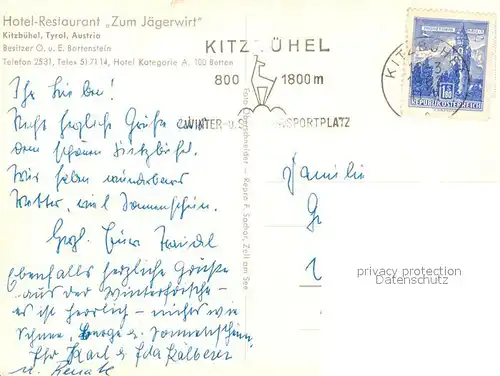 Hotel-Restaurant „Zum Jägerwirt"
Kitzbühel, Tyrol, Austria
Besitzer O. u. E. Bortenstein
Telefon 2531, Telex 517114, Hotel Kategorie A, 100 Betten
KITZBÜHEL
800 1800 m
WINTER- u. SPORTPLATZ
KITZBÜHEL
REPUBLIK ÖSTERREICH
Foto Oberschneider - Repro P. Sochor, Zell am See
Ihr Lieben!
Recht herzliche Grüße aus
dem schönen Kitzbühel.
Wir haben wunderbares
Wetter, viel Sonnenschein.
Hrzl. Eure
Ebenfalls herzliche Grüße
aus der Winterfrische -
es ist herrlich - nichts wie
Schnee, Berge & Sonnenschein.
Ihr Karl & Ida Kälberer
u. Renate
Familie
privacy protection
DatenSchutz